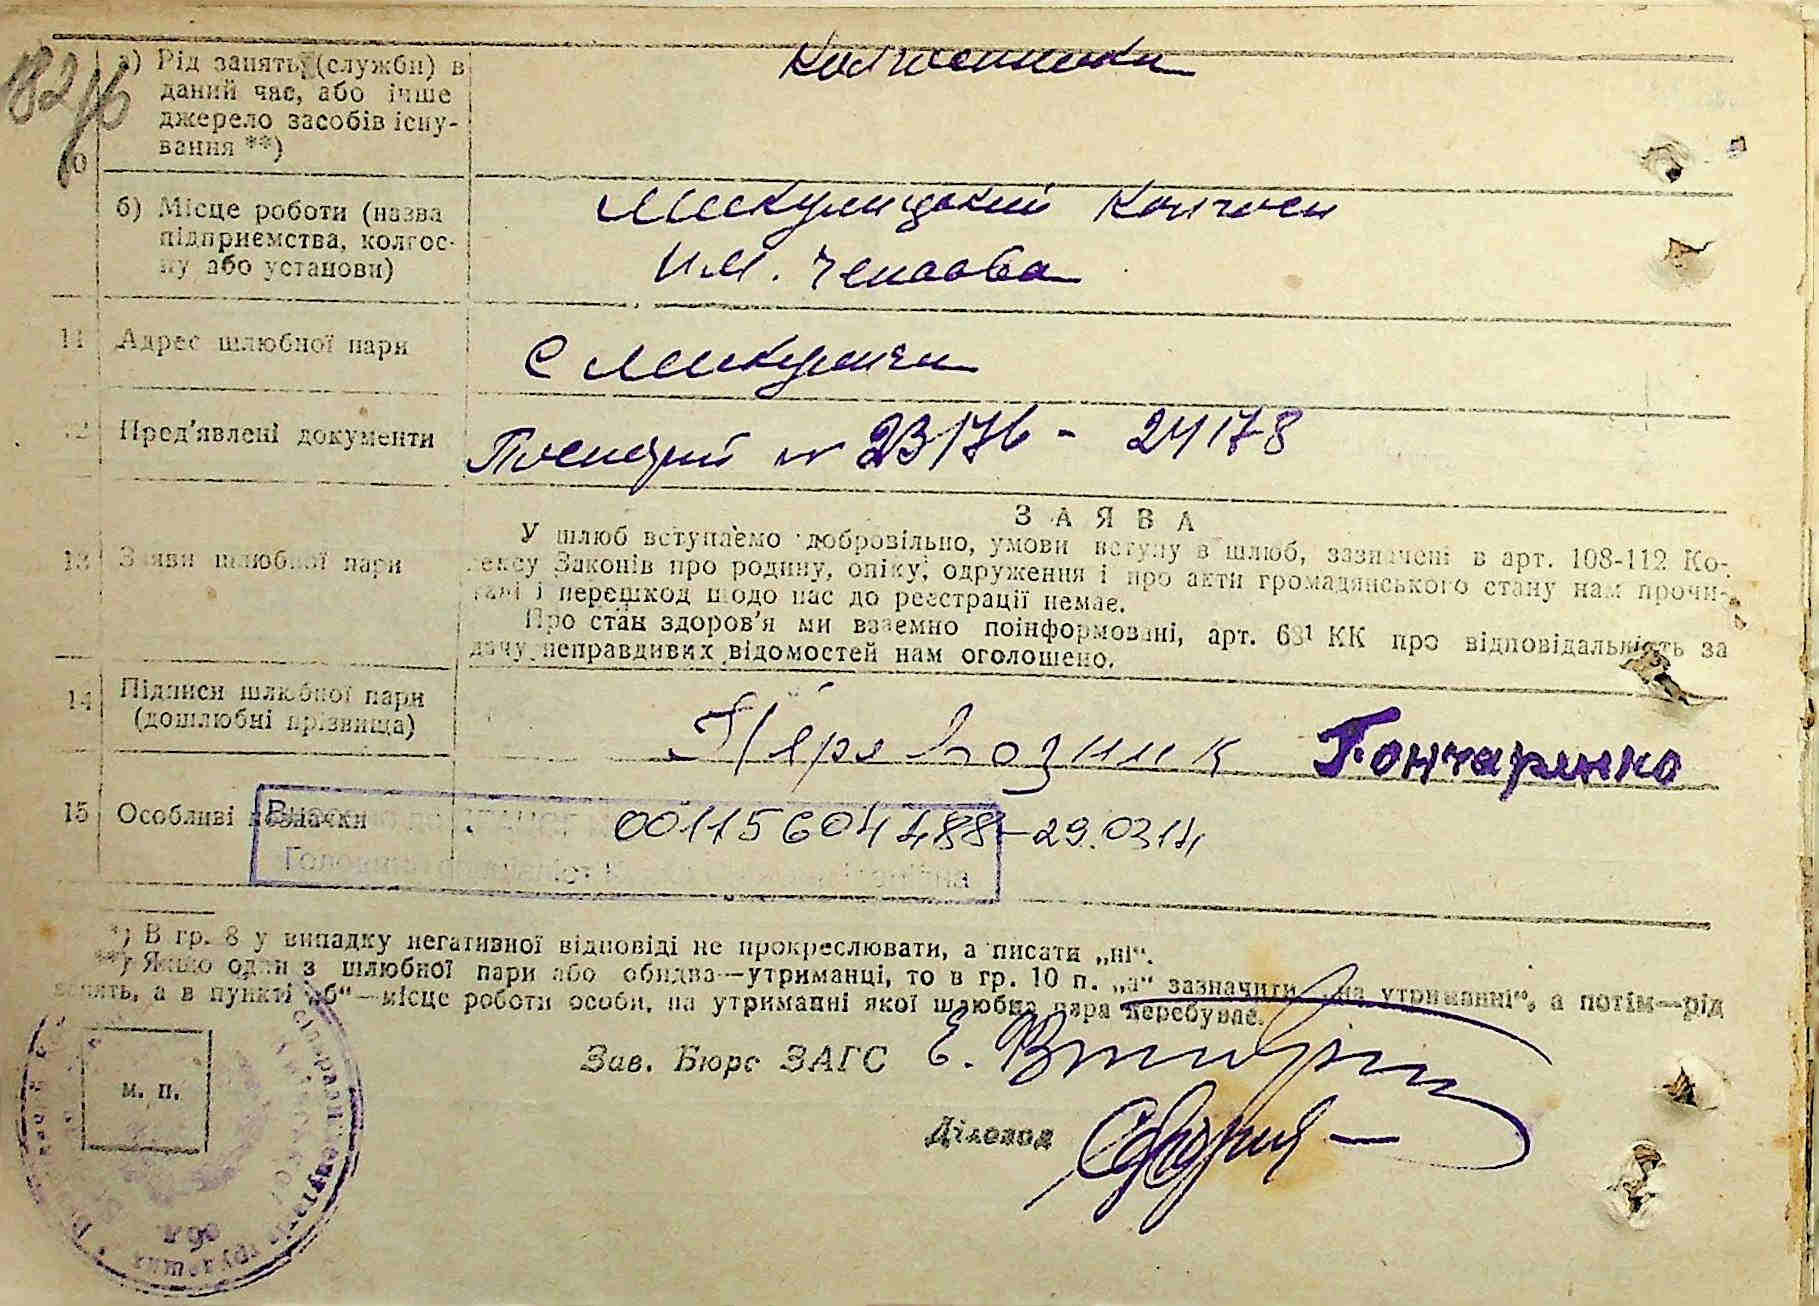 182/б
а) Рід занять (службн) в
даний час, або інше
джерело засобів існу-
вання **)
Колгоспники
б) Місце роботи (назва
підприємства, колгос-
пу або установи)
Микулицький колгосп
им. Чепаева
11 Адрес шлюбної пари
С Микуличи
12 Пред'явлені документи
№ 23176 - 24178
13 Заяви шлюбної пари
ЗАЯВА
У шлюб вступаємо добровільно, умови вступу в шлюб, зазначені в арт. 108-112 Ко-
дексу Законів про родину, опіку, одруження і про акти громадянського стану нам прочи-
тані і перешкод щодо нас до реєстрації немає.
Про стан здоров'я ми взаємно поінформовані, арт. 68¹ КК про відповідальність за
дачу неправдивих відомостей нам оголошено.
14 Підписи шлюбної пари
(дошлюбні прізвища)
Перевозник Гончаренко
15 Особливі позначки
00115604488-29.03.14
*) В гр. 8 у випадку негативної відповіді не прокреслювати, а писати „ні“.
**) Якщо один з шлюбної пари або обидва—утриманці, то в гр. 10 п. „а“ зазначити „на утриманні“, а потім—рід
занять, а в пункті „б“—місце роботи особи, на утриманні якої шлюбна пара перебуває.
Зав. Бюро ЗАГС
Діловод
м. п.